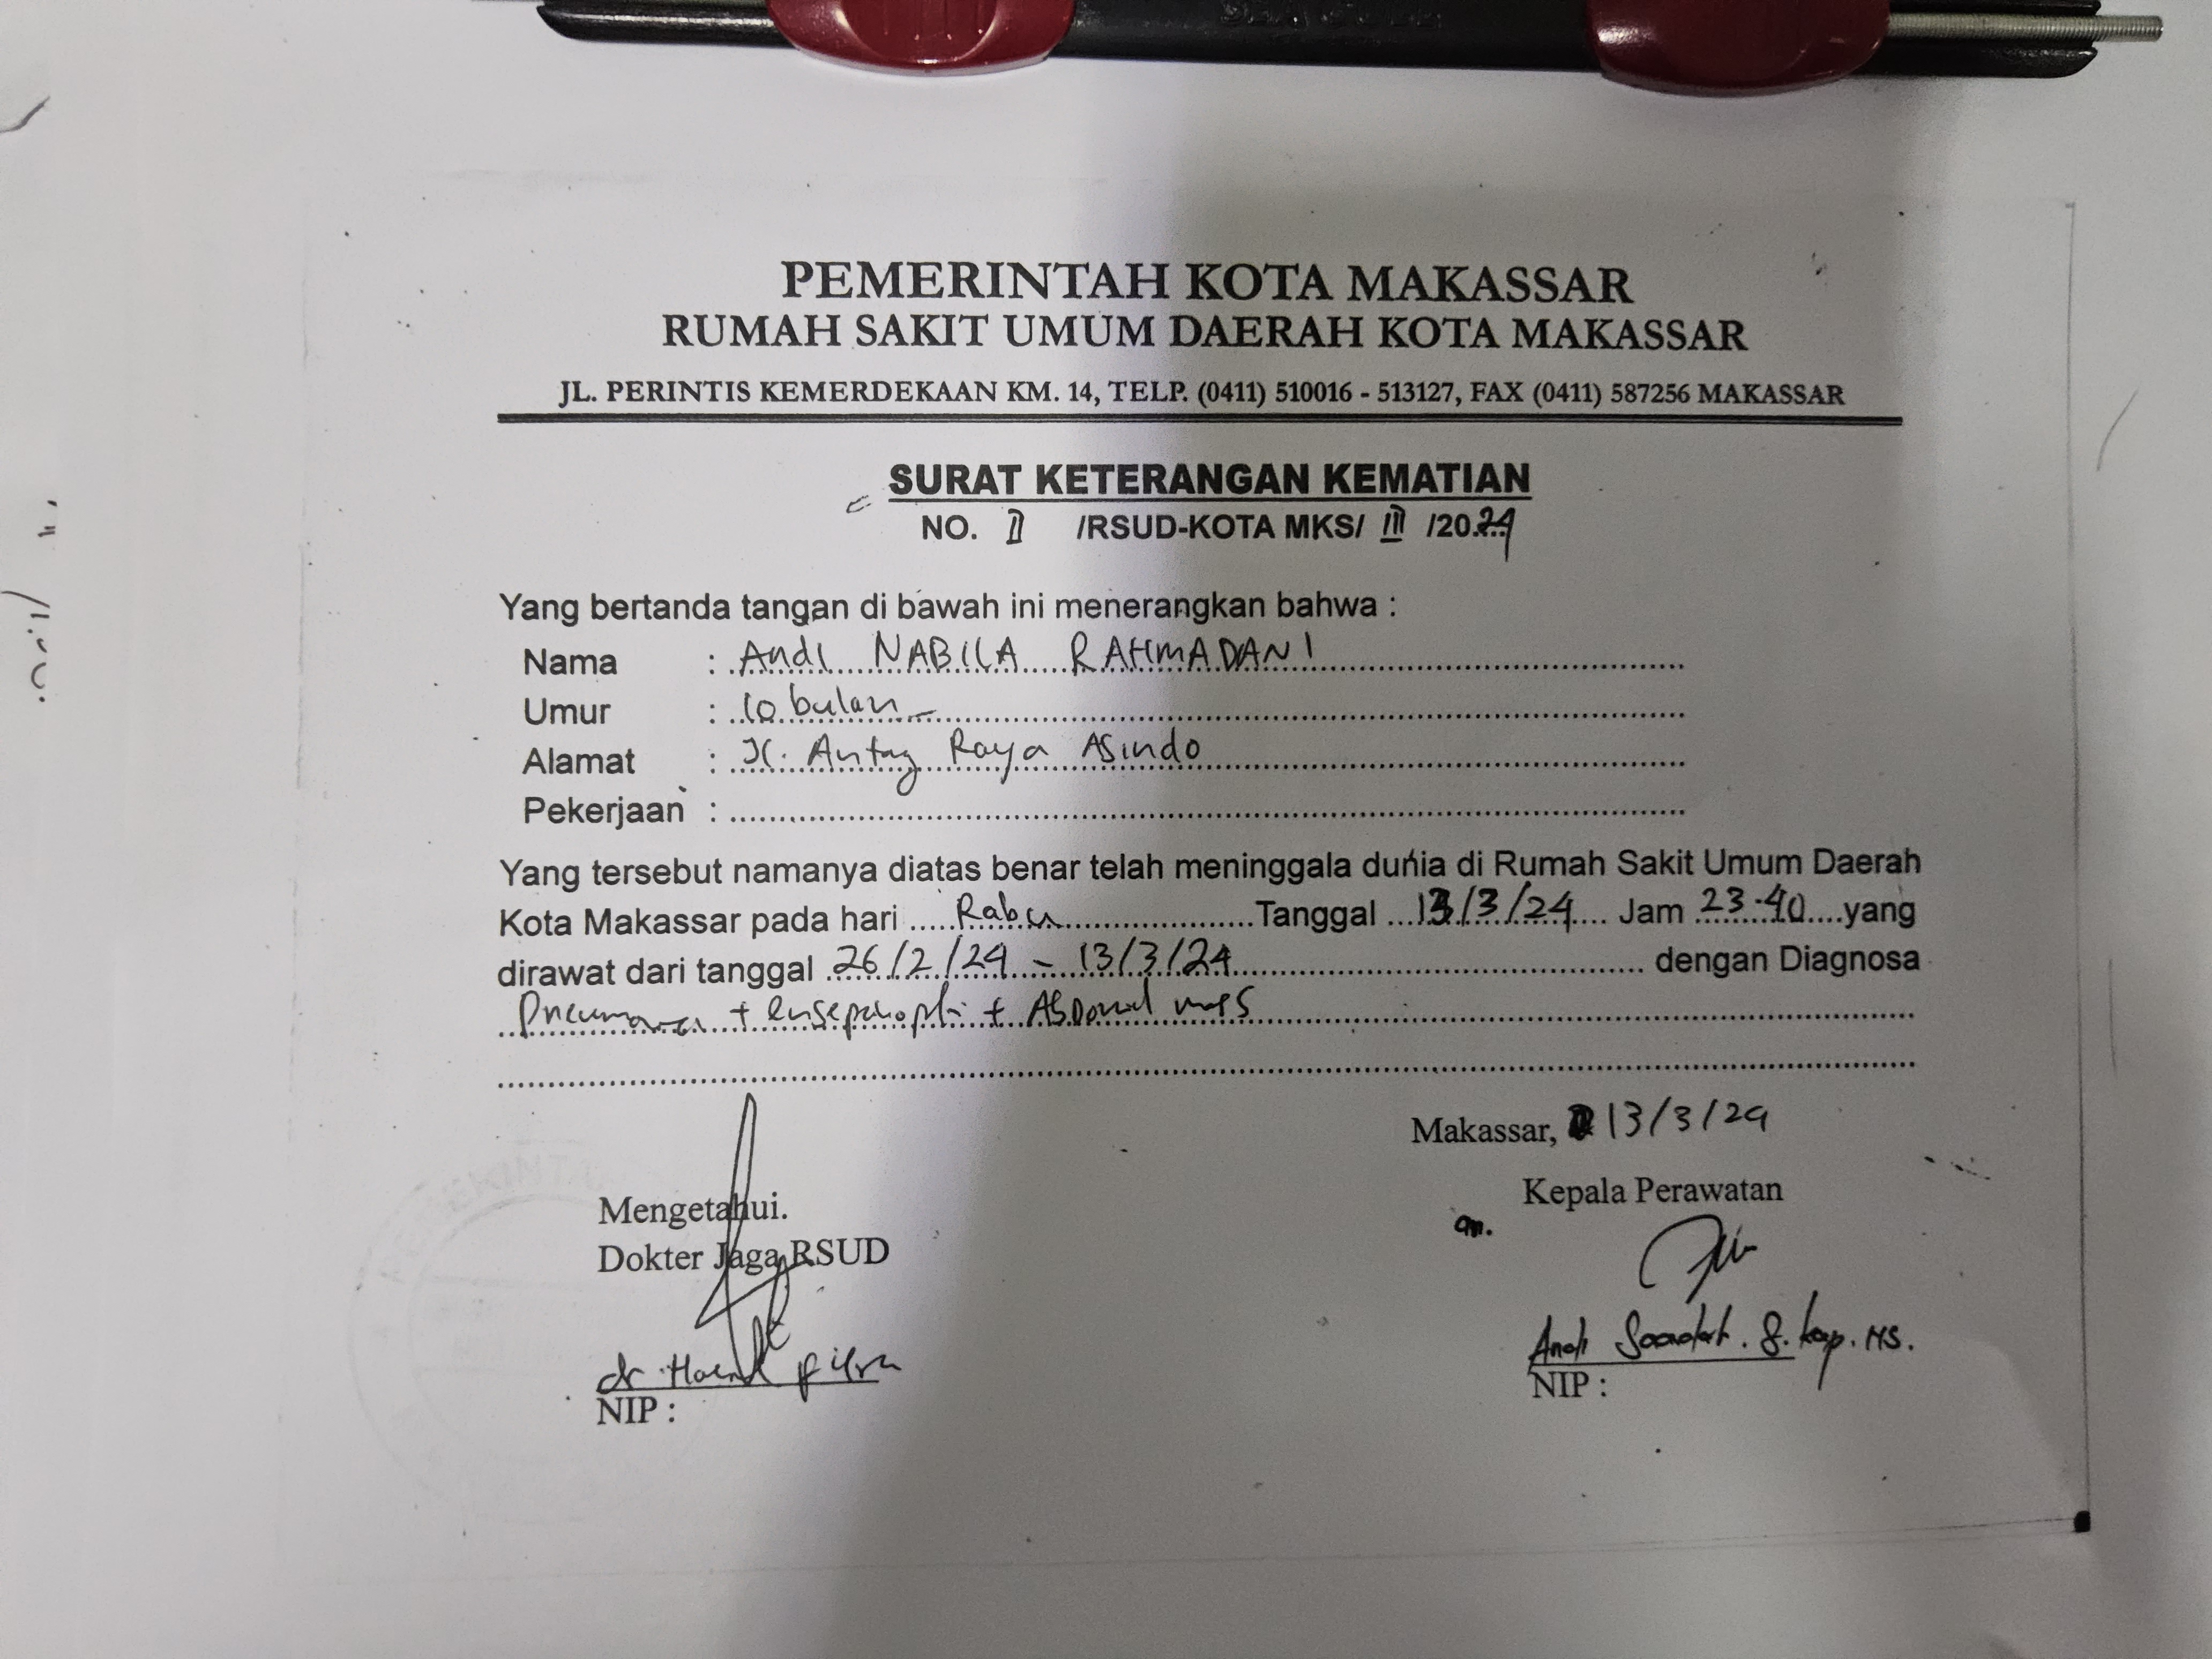 PEMERINTAH KOTA MAKASSAR
RUMAH SAKIT UMUM DAERAH KOTA MAKASSAR
JL. PERINTIS KEMERDEKAAN KM. 14, TELP. (0411) 510016 - 513127, FAX (0411) 587256 MAKASSAR
SURAT KETERANGAN KEMATIAN
NO. II /RSUD-KOTA MKS/ III /2024
Yang bertanda tangan di bawah ini menerangkan bahwa :
Nama : Andi NABILA RAHMADANI
Umur : 10 bulan
Alamat : Jl. Antag Raya Asindo
Pekerjaan :
Yang tersebut namanya diatas benar telah meninggala dunia di Rumah Sakit Umum Daerah
Kota Makassar pada hari Rabu Tanggal 13/3/24 Jam 23.40 yang
dirawat dari tanggal 26/2/24 - 13/3/24 dengan Diagnosa
+ +
Makassar, 13/3/24
Mengetahui.
Kepala Perawatan
Dokter Jaga RSUD
an.
dr
Andi S.kep.NS.
NIP :
NIP :